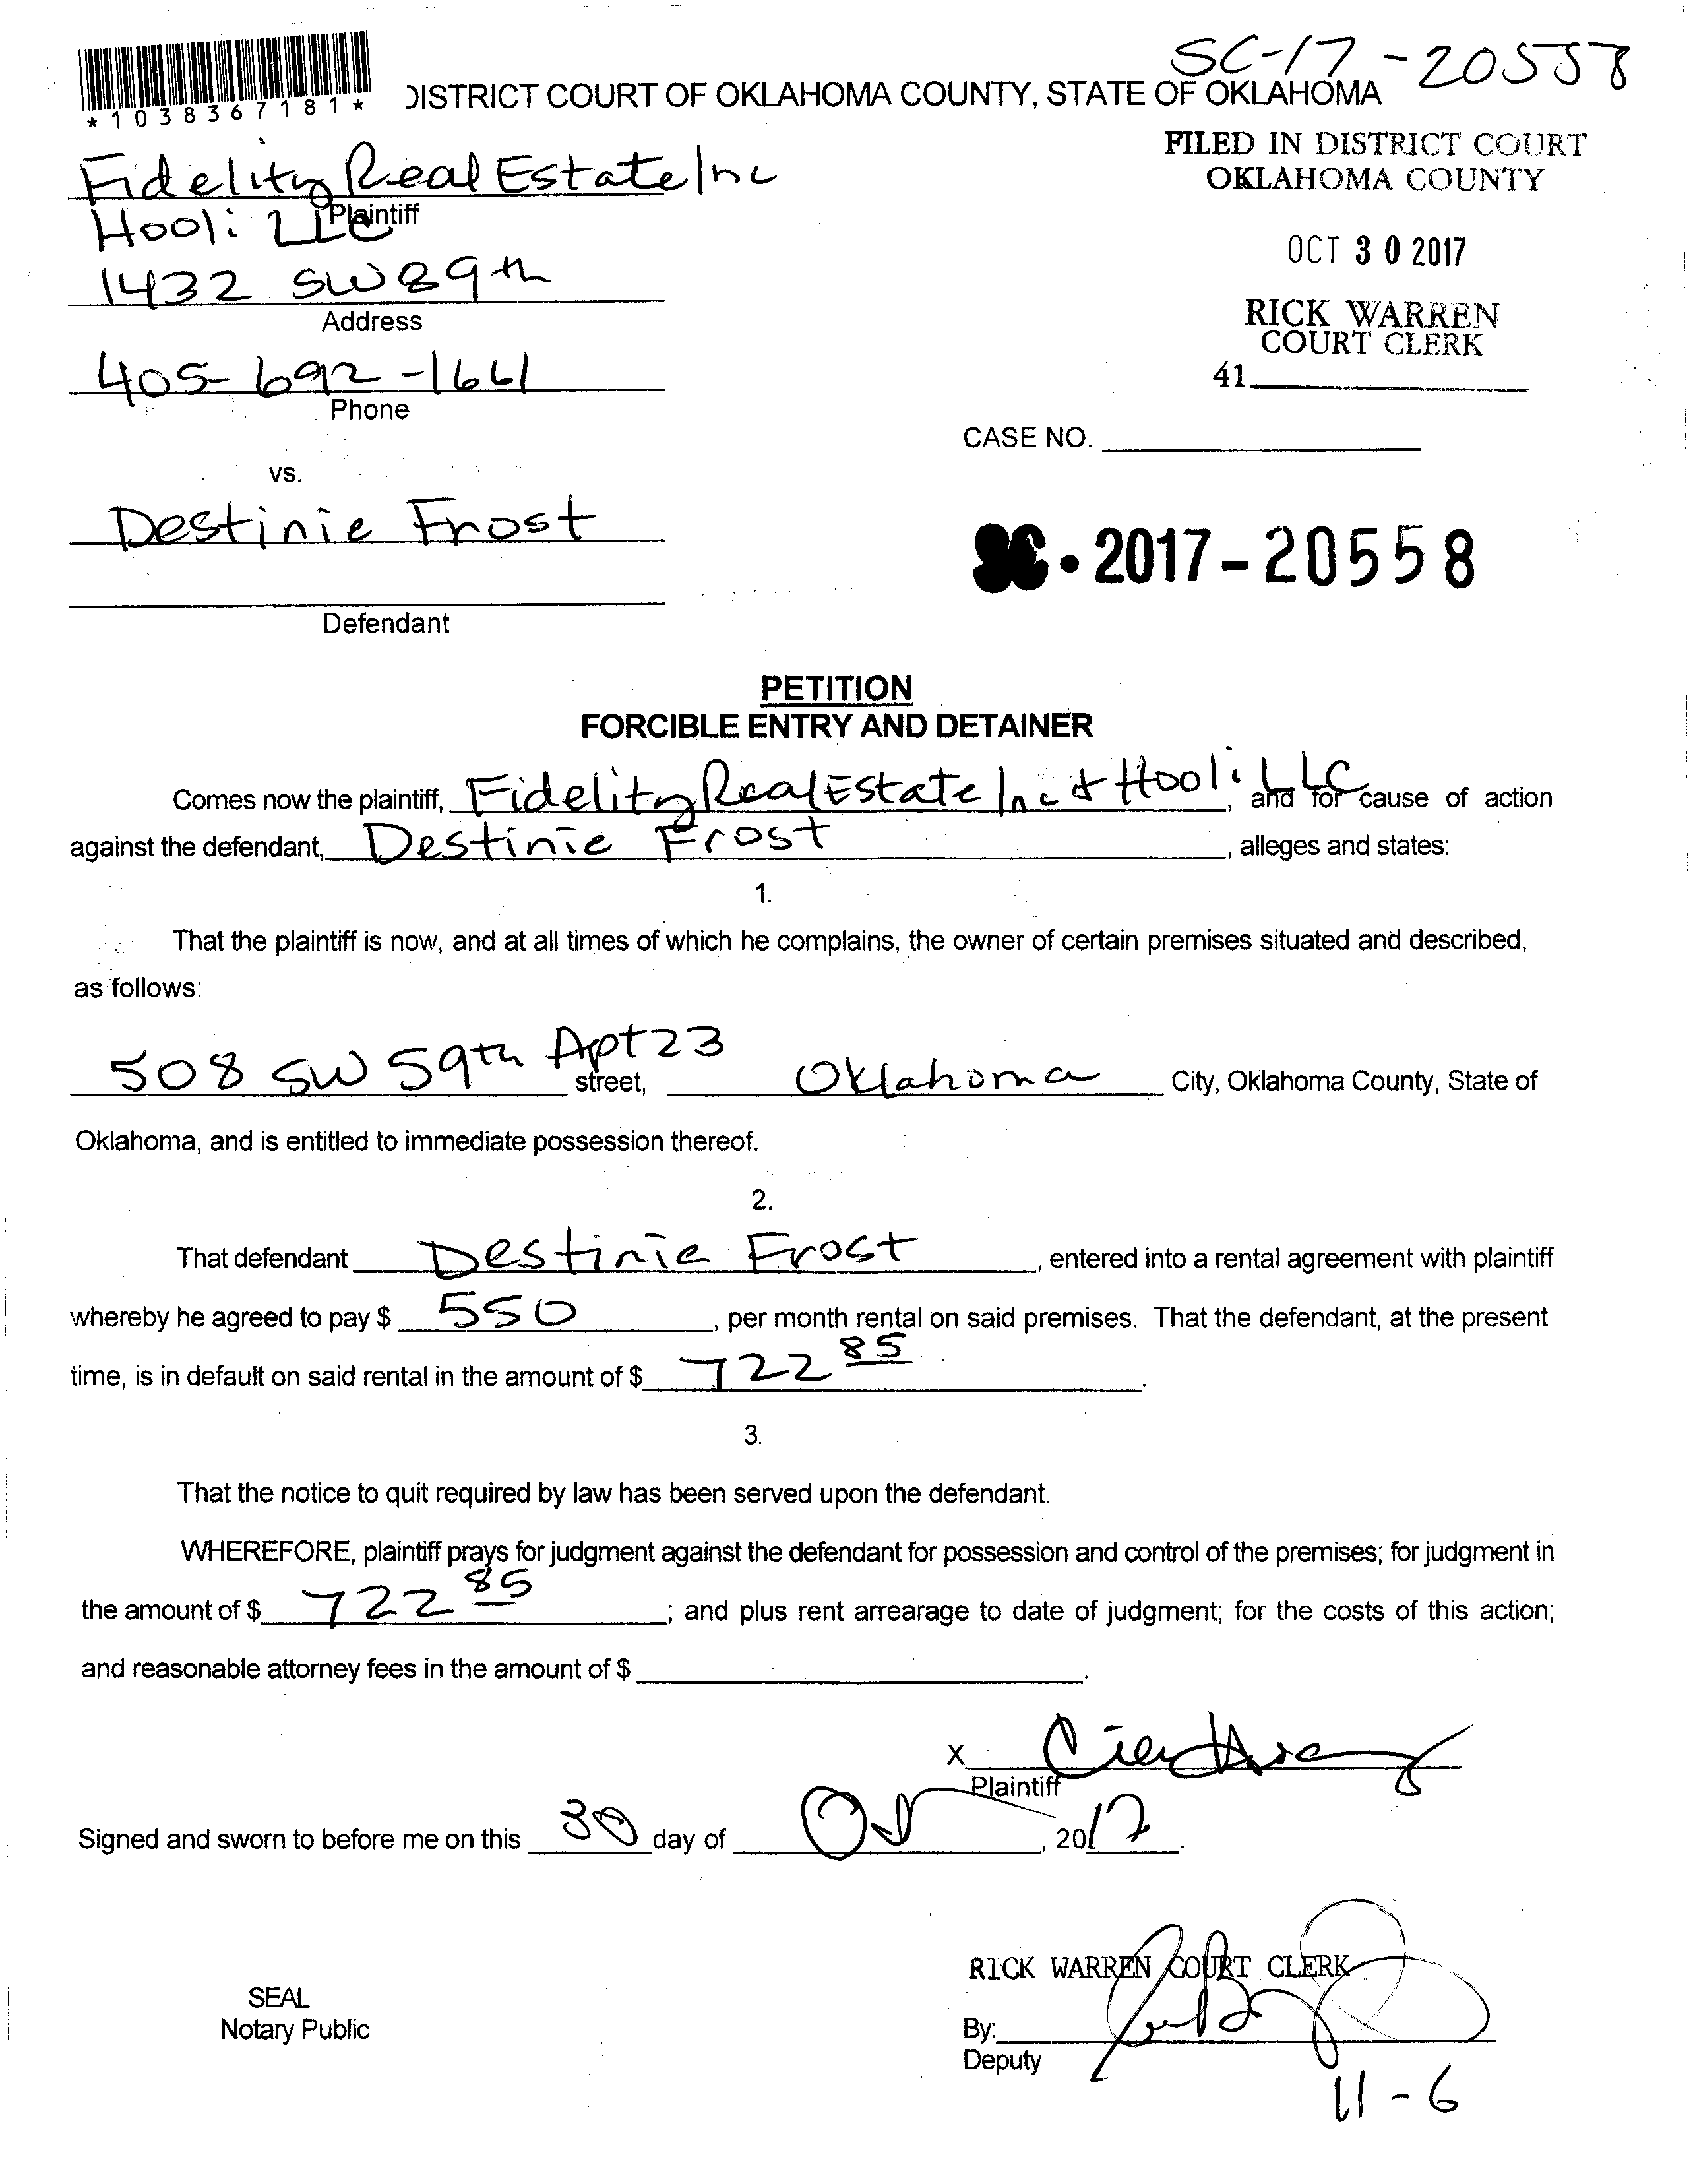 SC-17-20558
*1038367181*
DISTRICT COURT OF OKLAHOMA COUNTY, STATE OF OKLAHOMA
FILED IN DISTRICT COURT
OKLAHOMA COUNTY
Fidelity Real Estate Inc
Plaintiff
Hooli LLC
OCT 30 2017
1432 SW 89th
Address
RICK WARREN
COURT CLERK
405-692-1661
Phone
41
CASE NO.
vs.
Destinie Frost
SC-2017-20558
Defendant
PETITION
FORCIBLE ENTRY AND DETAINER
Comes now the plaintiff, Fidelity Real Estate Inc & Hooli LLC, and for cause of action
against the defendant, Destinie Frost, alleges and states:
1.
That the plaintiff is now, and at all times of which he complains, the owner of certain premises situated and described,
as follows:
508 SW 59th Apt 23 street, Oklahoma City, Oklahoma County, State of
Oklahoma, and is entitled to immediate possession thereof.
2.
That defendant Destinie Frost, entered into a rental agreement with plaintiff
whereby he agreed to pay $ 550, per month rental on said premises. That the defendant, at the present
time, is in default on said rental in the amount of $ 722 85.
3.
That the notice to quit required by law has been served upon the defendant.
WHEREFORE, plaintiff prays for judgment against the defendant for possession and control of the premises; for judgment in
the amount of $ 722 85; and plus rent arrearage to date of judgment; for the costs of this action;
and reasonable attorney fees in the amount of $ .
X
Plaintiff
Signed and sworn to before me on this 30 day of , 2017.
RICK WARREN COURT CLERK
SEAL
Notary Public
By:
Deputy
11-6